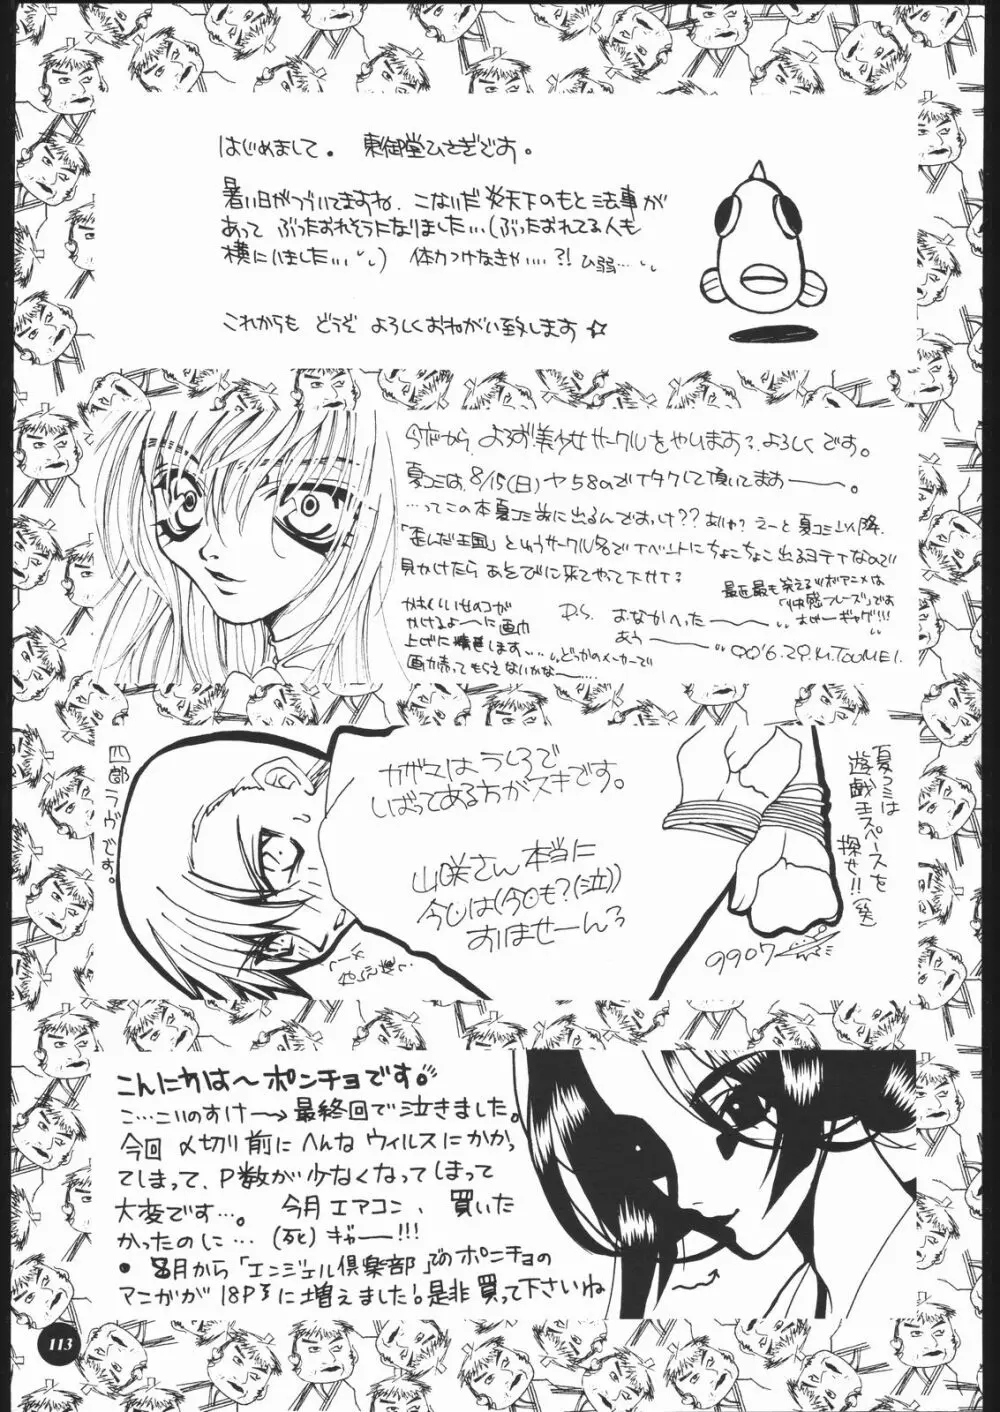 はじめまして。 東御堂ひさぎです。
暑い日がつづいてますね、こないだ炎天下のもと法事が
あって ぶったおれそうになりました…(ぶったおれてる人も
横にいました…) 体力つけなきゃ…?! ひ弱…
これからも どうぞ よろしくおねがい致します☆
今度から、よろず美少女サークルをやります?よろしくです。
夏コミは、8/15(日) ヤ58aでイタクして頂いてますーー。
…ってこの本夏コミ前に出るんですっけ??ありゃ?えーと夏コミ以降、
「歪んだ王国」というサークル名でイベントにちょこちょこ出るヨテイなので
見かけたら あそびに来てやって下サイ?
最近最も笑えるツボアニメは
「快感フレーズ」です
かわいい女のコが
かけるよーーに 画力
上げに精進します……
どっかのメーカーで
画力売ってもらえないかなー…
P.S. おなかへったーーー
あうーーー
99'6.29.M.TOUMEI.
四郎ラヴです。
カガミはうしろで
しばってある方がスキです。
山咲さん本当に
今回は(今回も?(泣))
すいませーん
夏コミは
遊戯王スペースを
探せ!!(笑)
9907
こんにちは〜ポンチョです。
こ…こいのすけー→最終回で泣きました。
今回〆切り前にへんなウィルスにかかっ
てしまって、P数が少なくなってしまって
大変です…。 今月エアコン、買いた
かったのに…(死)ギャー!!!
・8月から「エンジェル倶楽部」でのポンチョの
マンガが18Pに増えました!是非買って下さいね
113